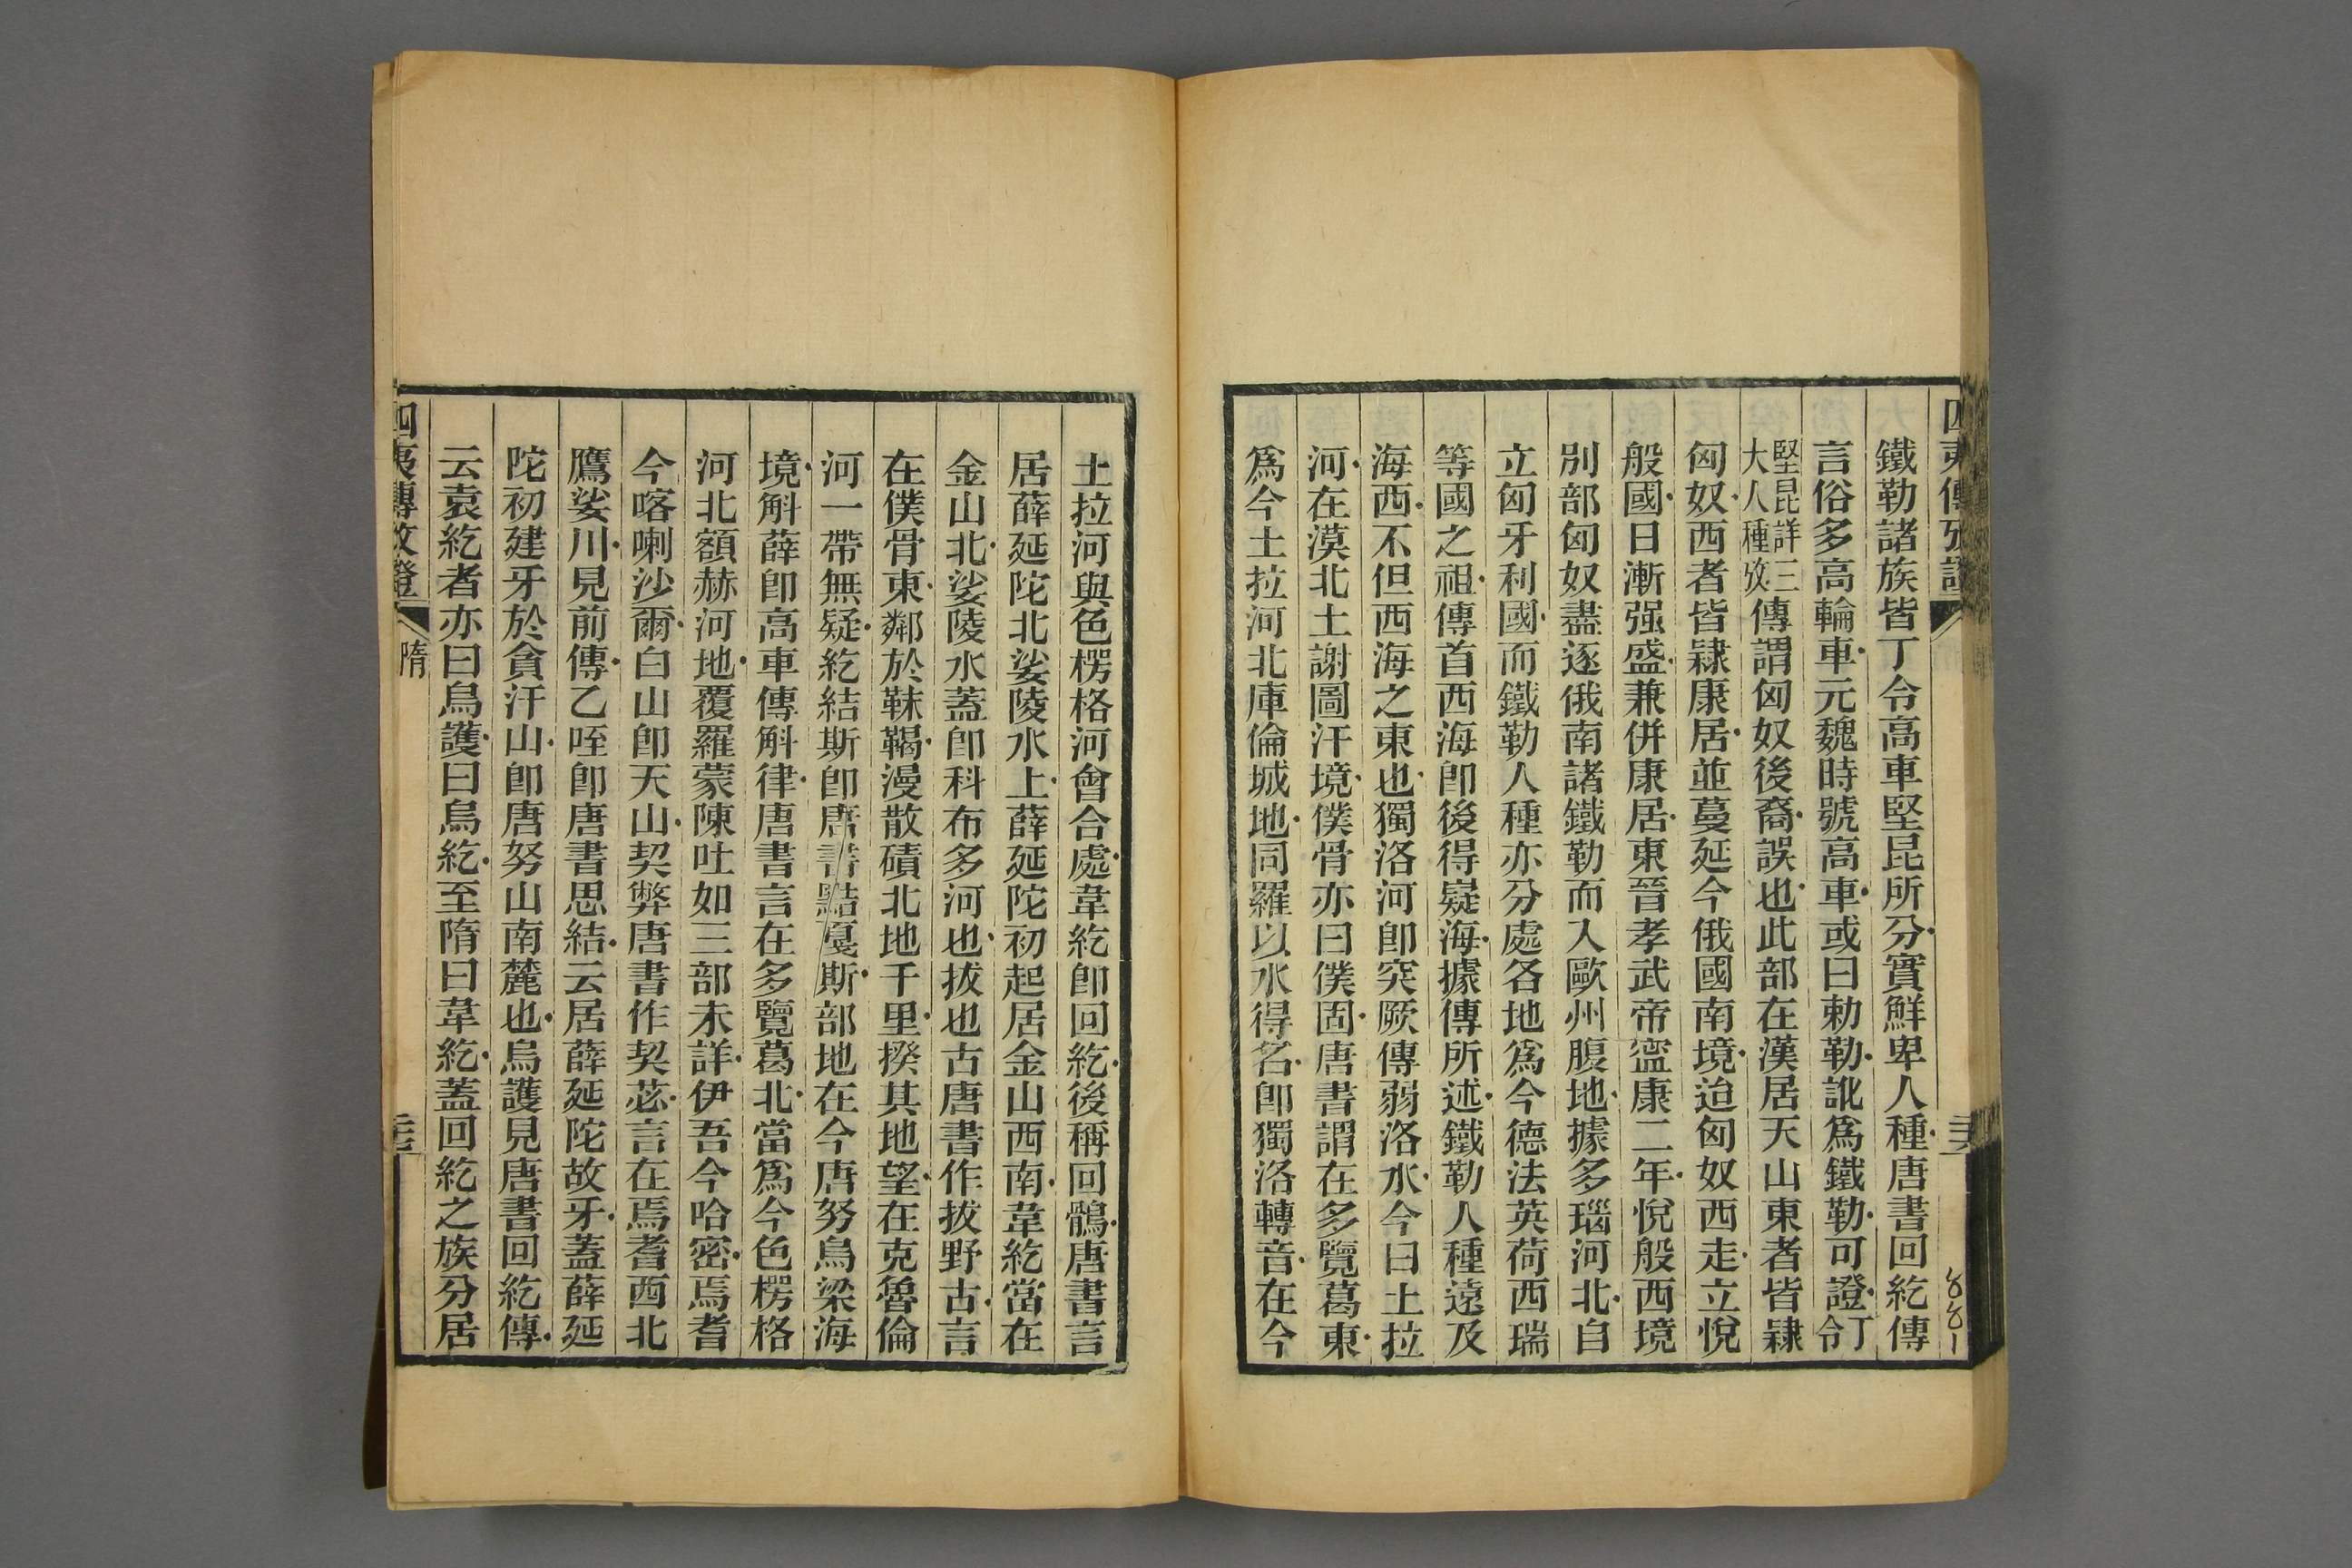 四夷傳攷證
鐵勒諸族皆丁令高車堅昆所分實鮮卑人種唐書回紇傳
言俗多高輪車元魏時號高車或曰勅勒訛爲鐵勒可證丁令
堅昆詳三
大人種攷傳謂匈奴後裔誤也此部在漢居天山東者皆隸
匈奴西者皆隸康居並蔓延今俄國南境迨匈奴西走立悅
般國日漸强盛兼併康居東晉孝武帝寍康二年悅般西境
別部匈奴盡逐俄南諸鐵勒而入歐州腹地據多瑙河北自
立匈牙利國而鐵勒人種亦分處各地爲今德法英荷西瑞
等國之祖傳首西海卽後得嶷海據傳所述鐵勒人種遠及
海西不但西海之東也獨洛河卽突厥傳弱洛水今曰土拉
河在漠北土謝圖汗境僕骨亦曰僕固唐書謂在多覽葛東
爲今土拉河北庫倫城地同羅以水得名卽獨洛轉音在今
8881
土拉河與色楞格河會合處韋紇卽回紇後稱回鶻唐書言
居薛延陀北娑陵水上薛延陀初起居金山西南韋紇當在
金山北娑陵水蓋卽科布多河也拔也古唐書作拔野古言
在僕骨東鄰於靺鞨漫散磧北地千里揆其地望在克魯倫
河一帶無疑紇結斯卽唐書黠戛斯部地在今唐努烏梁海
境斛薛卽高車傳斛律唐書言在多覽葛北當爲今色楞格
河北額赫河地覆羅蒙陳吐如三部未詳伊吾今哈密焉耆
今喀喇沙爾白山卽天山契弊唐書作契苾言在焉耆西北
鷹娑川見前傳乙咥卽唐書思結云居薛延陀故牙蓋薛延
陀初建牙於貪汗山卽唐努山南麓也烏護見唐書回紇傳
云袁紇者亦曰烏護曰烏紇至隋曰韋紇蓋回紇之族分居
四夷傳攷證
隋